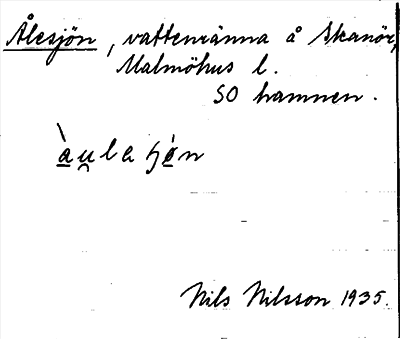 Ålesjön, vattenränna å Skanör,
Malmöhus l.
SO hamnen.
à̱u̯leɧö́n
Nils Nilsson 1935.